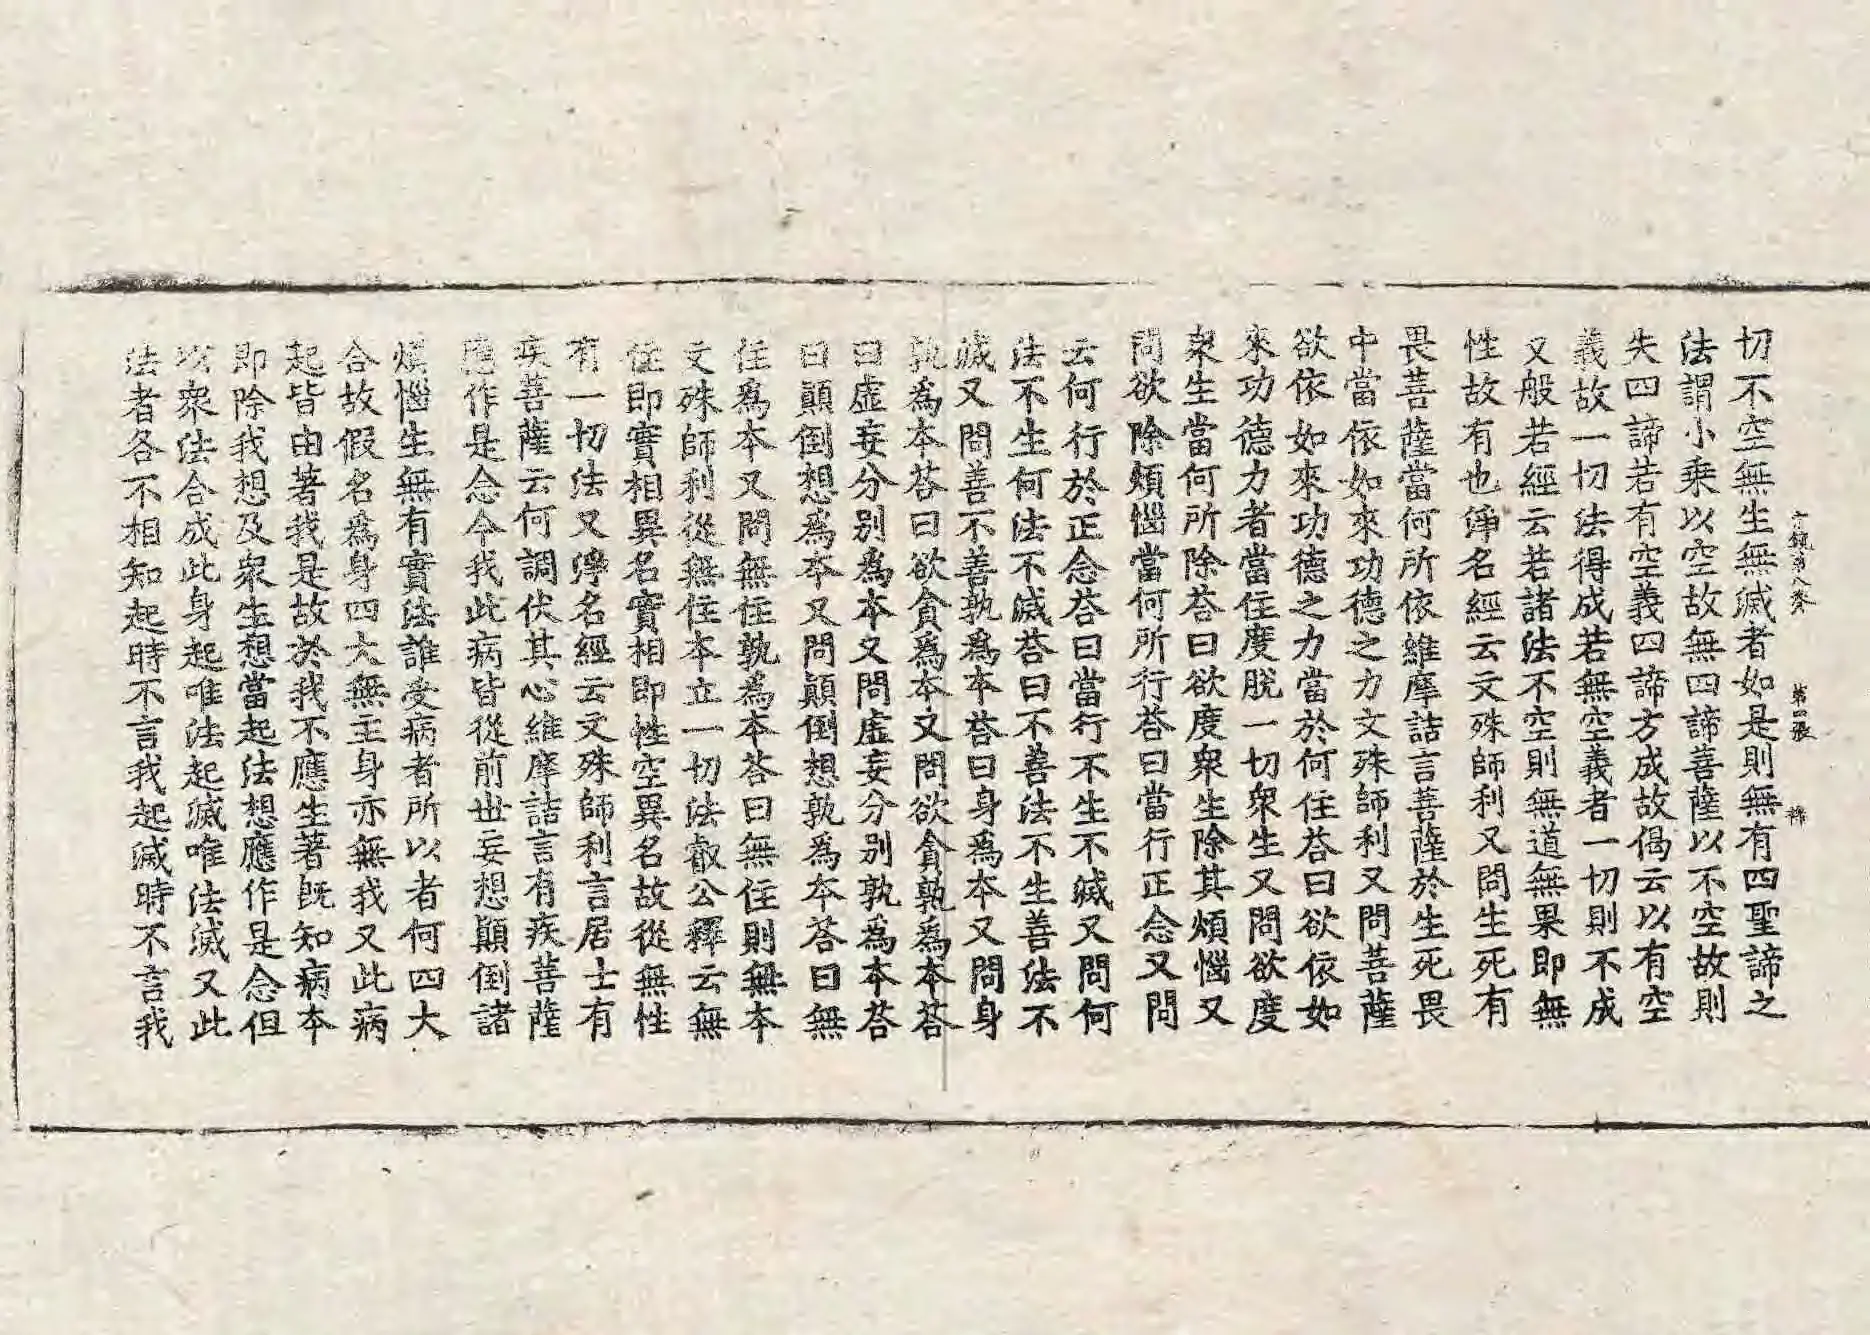 宗鏡第八卷 第四張 祚
切不空無生無滅者如是則無有四聖諦之
法謂小乗以空故無四諦菩薩以不空故則
失四諦若有空義四諦方成故偈云以有空
義故一切法得成若無空義者一切則不成
又般若經云若諸法不空則無道無果即無
性故有也淨名經云文殊師利又問生死有
畏菩薩當何所依維摩詰言菩薩於生死畏
中當依如來功德之力文殊師利又問菩薩
欲依如來功德之力當於何住荅曰欲依如
來功德力者當住度脫一切衆生又問欲度
衆生當何所除荅曰欲度衆生除其煩惱又
問欲除煩惱當何所行荅曰當行正念又問
云何行於正念荅曰當行不生不滅又問何
法不生何法不滅荅曰不善法不生善法不
滅又問善不善孰爲本荅曰身爲本又問身
孰爲本荅曰欲貪爲本又問欲貪孰爲本荅
曰虛妄分别爲本又問虛妄分别孰爲本荅
曰顛倒想爲本又問顛倒想孰爲本荅曰無
住爲本又問無住孰爲本荅曰無住則無本
文殊師利從無住本立一切法叡公釋云無
住即實相異名實相即性空異名故從無性
有一切法又淨名經云文殊師利言居士有
疾菩薩云何調伏其心維摩詰言有疾菩薩
應作是念今我此病皆從前世妄想顛倒諸
煩惱生無有實法誰受病者所以者何四大
合故假名爲身四大無主身亦無我又此病
起皆由著我是故於我不應生著旣知病本
即除我想及衆生想當起法想應作是念但
以衆法合成此身起唯法起滅唯法滅又此
法者各不相知起時不言我起滅時不言我